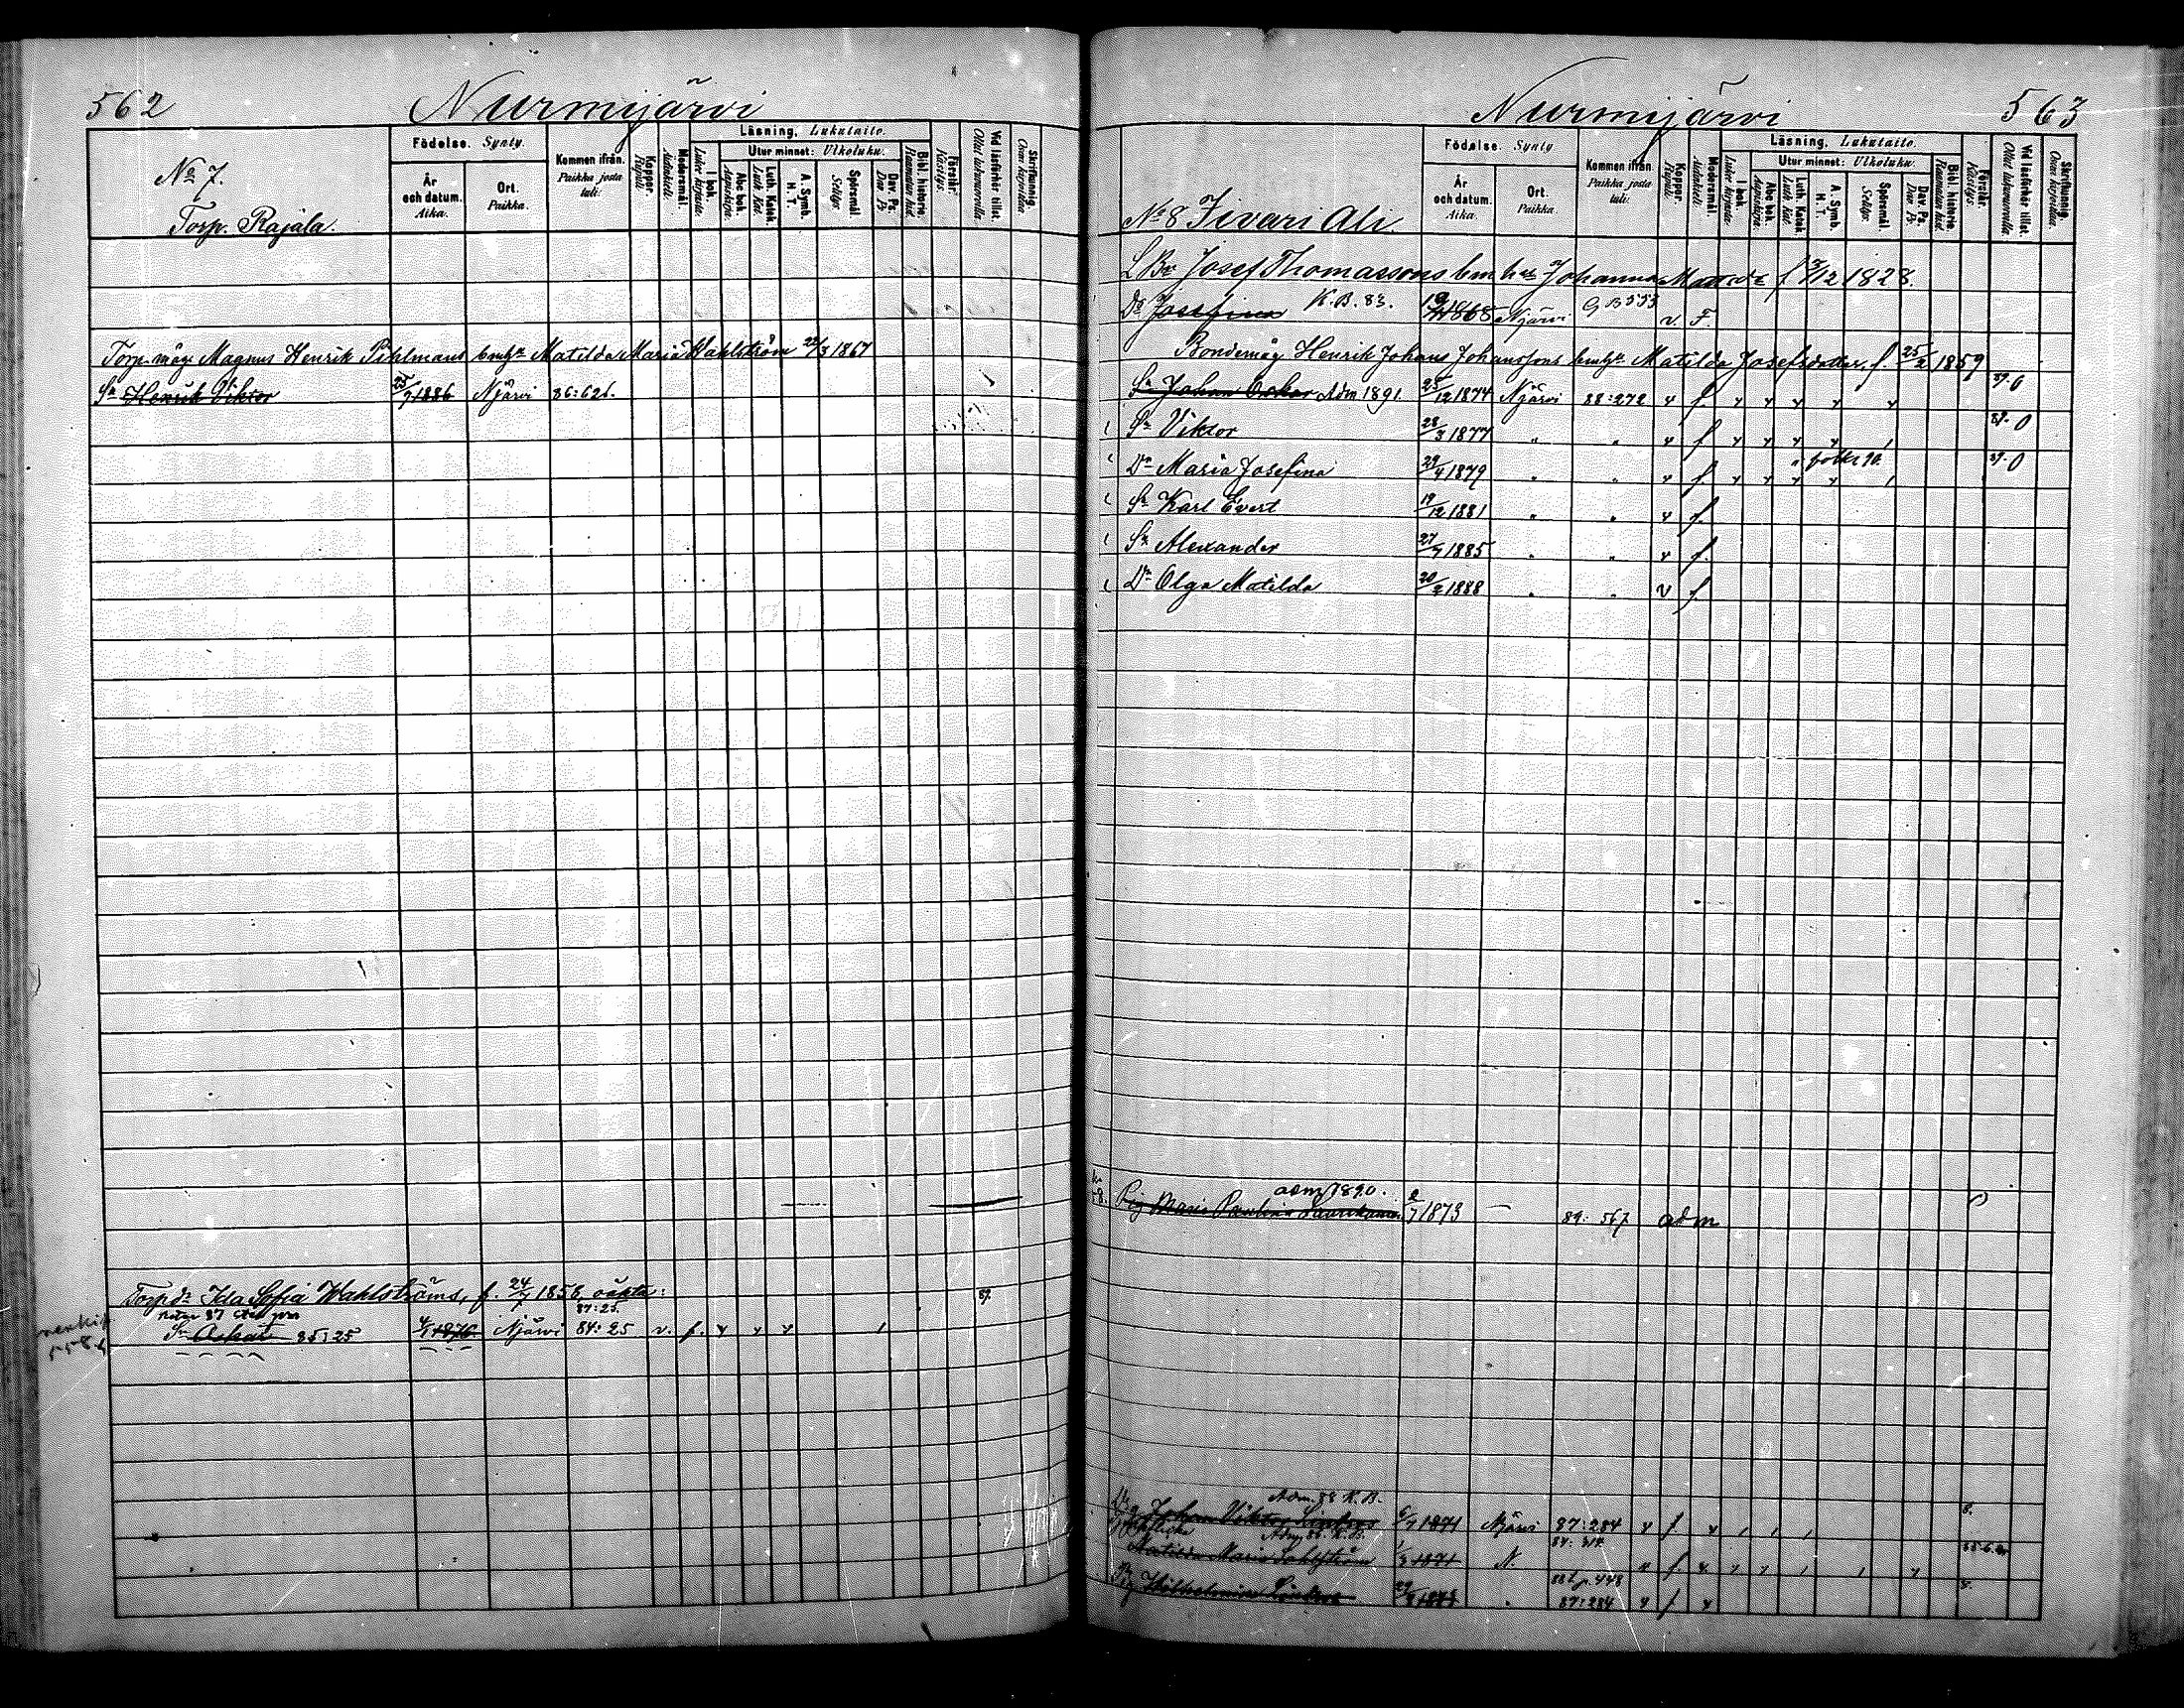 562 Nurmijärvi
No 7.
Torp. Rajala.
Födelse. Synty.
År och datum. Aika.
Ort. Paikka.
Kommen ifrån. Paikka josta tuli.
Koppor. Rupuli.
Modersmål. Äidinkieli.
Läsning. Lukutaito.
I bok. Lukee kirjasta.
Utur minnet: Ulkoluku.
Abc bok. Aapiskirja.
Luth. Katek. Luth. Kat.
A. Symb. H. T.
Spörsmål. Selitys.
Dav. Ps. Dav. Ps.
Bibl. historia. Raamatun hist.
Förstår. Käsitys.
Vid läsförhör tillst. Ollut lukuvuorolla.
Skriftmunnig. Osaa kirjoittaa.
Torp. måg Magnus Henrik Pihlmans hustr. Matilda Maria Wahlström 22/3 1867
Sn Henrik Viktor 25/7 1886 Njärvi 86:626.
Torp. dr Ida Sofia Wahlströms, f. 24/7 1856, oäkta:
87:25.
Sn Oskar 85:25 1876 Njärvi 84:25 v. f. 87.
558
Nurmijärvi 563
No 8 Iivari Ali.
Födelse. Synty
År och datum. Aika.
Ort. Paikka.
Kommen ifrån. Paikka josta tuli:
Koppor. Rupuli.
Modersmål. Äidinkieli.
Läsning. Lukutaito.
I bok. Lukee kirjasta.
Utur minnet: Ulkoluku.
Abc bok. Aapiskirja.
Luth. Katek. Luth. Kat.
A. Symb. H. T.
Spörsmål. Selitys.
Dav. Ps. Dav. Ps.
Bibl. historia. Raamatun hist.
Förstår. Käsitys.
Vid läsförhör tillst. Ollut lukuvuorolla.
Skriftmunnig. Osaa kirjoittaa.
Josef Thomassons Johanna f 12 1828.
Dr Josefina K.B. 83. 1868 Njärvi G B 555 v. F.
Bondemåg Henrik Johans Johanssons hustr. Matilda Josefsdotter, f. 25/2 1859
Sn Johan Oskar Adm 1891. 25/12 1874 Njärvi 88:272 v f. 89. 0
Sn Viktor 28/3 1877 " " v f 89. 0
Dr Maria Josefina 29/4 1879 " " v f folks. 90. 89. 0
Sn Karl Evert 19/12 1881 " " v f.
Sn Alexander 27/7 1885 " " v f.
Dr Olga Matilda 20/2 1888 " " v f.
adm 1890.
Pig Maria Paulina 2/7 1873 — 89:567 adm
Adm. 88 K.B.
Johan Viktor 6/7 1871 Njärvi 87:284 v f 8.
84:314
Matilda Maria Sahlström 1871 N. f.
448
Pig Wilhelmina 87:284 v f